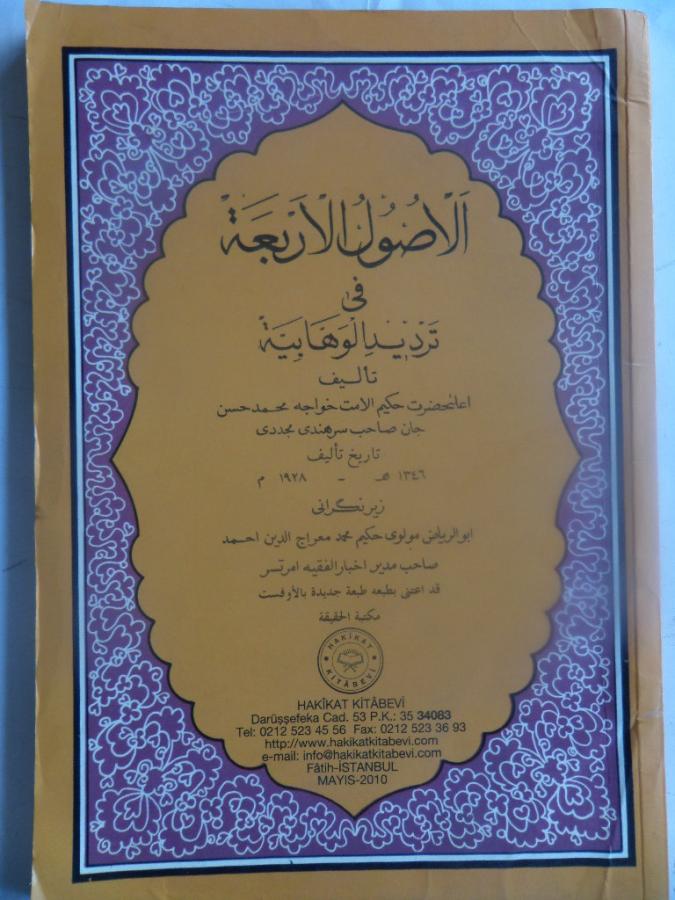 اَلْاُصُولُ الْاَرْبَعَةْ
فى
تَرْدِيدِ الْوَهَابِيَةْ
تأليف
اعلىحضرت حكيم الامت خواجه محمد حسن
جان صاحب سرهندى مجددى
تاريخ تأليف
١٣٤٦ هـ - ١٩٢٨ م
زير نگرانى
ابو الرياض مولوى حكيم محمد معراج الدين احمد
صاحب مدير اخبار الفقيه امرتسر
قد اعتنى بطبعه طبعة جديدة بالأوفست
مكتبة الحقيقة
HAKİKAT KİTÂBEVİ
HAKÎKAT KİTÂBEVİ
Darüşşefeka Cad. 53 P.K.: 35 34083
Tel: 0212 523 45 56 Fax: 0212 523 36 93
http://www.hakikatkitabevi.com
e-mail: info@hakikatkitabevi.com
Fâtih-İSTANBUL
MAYIS-2010